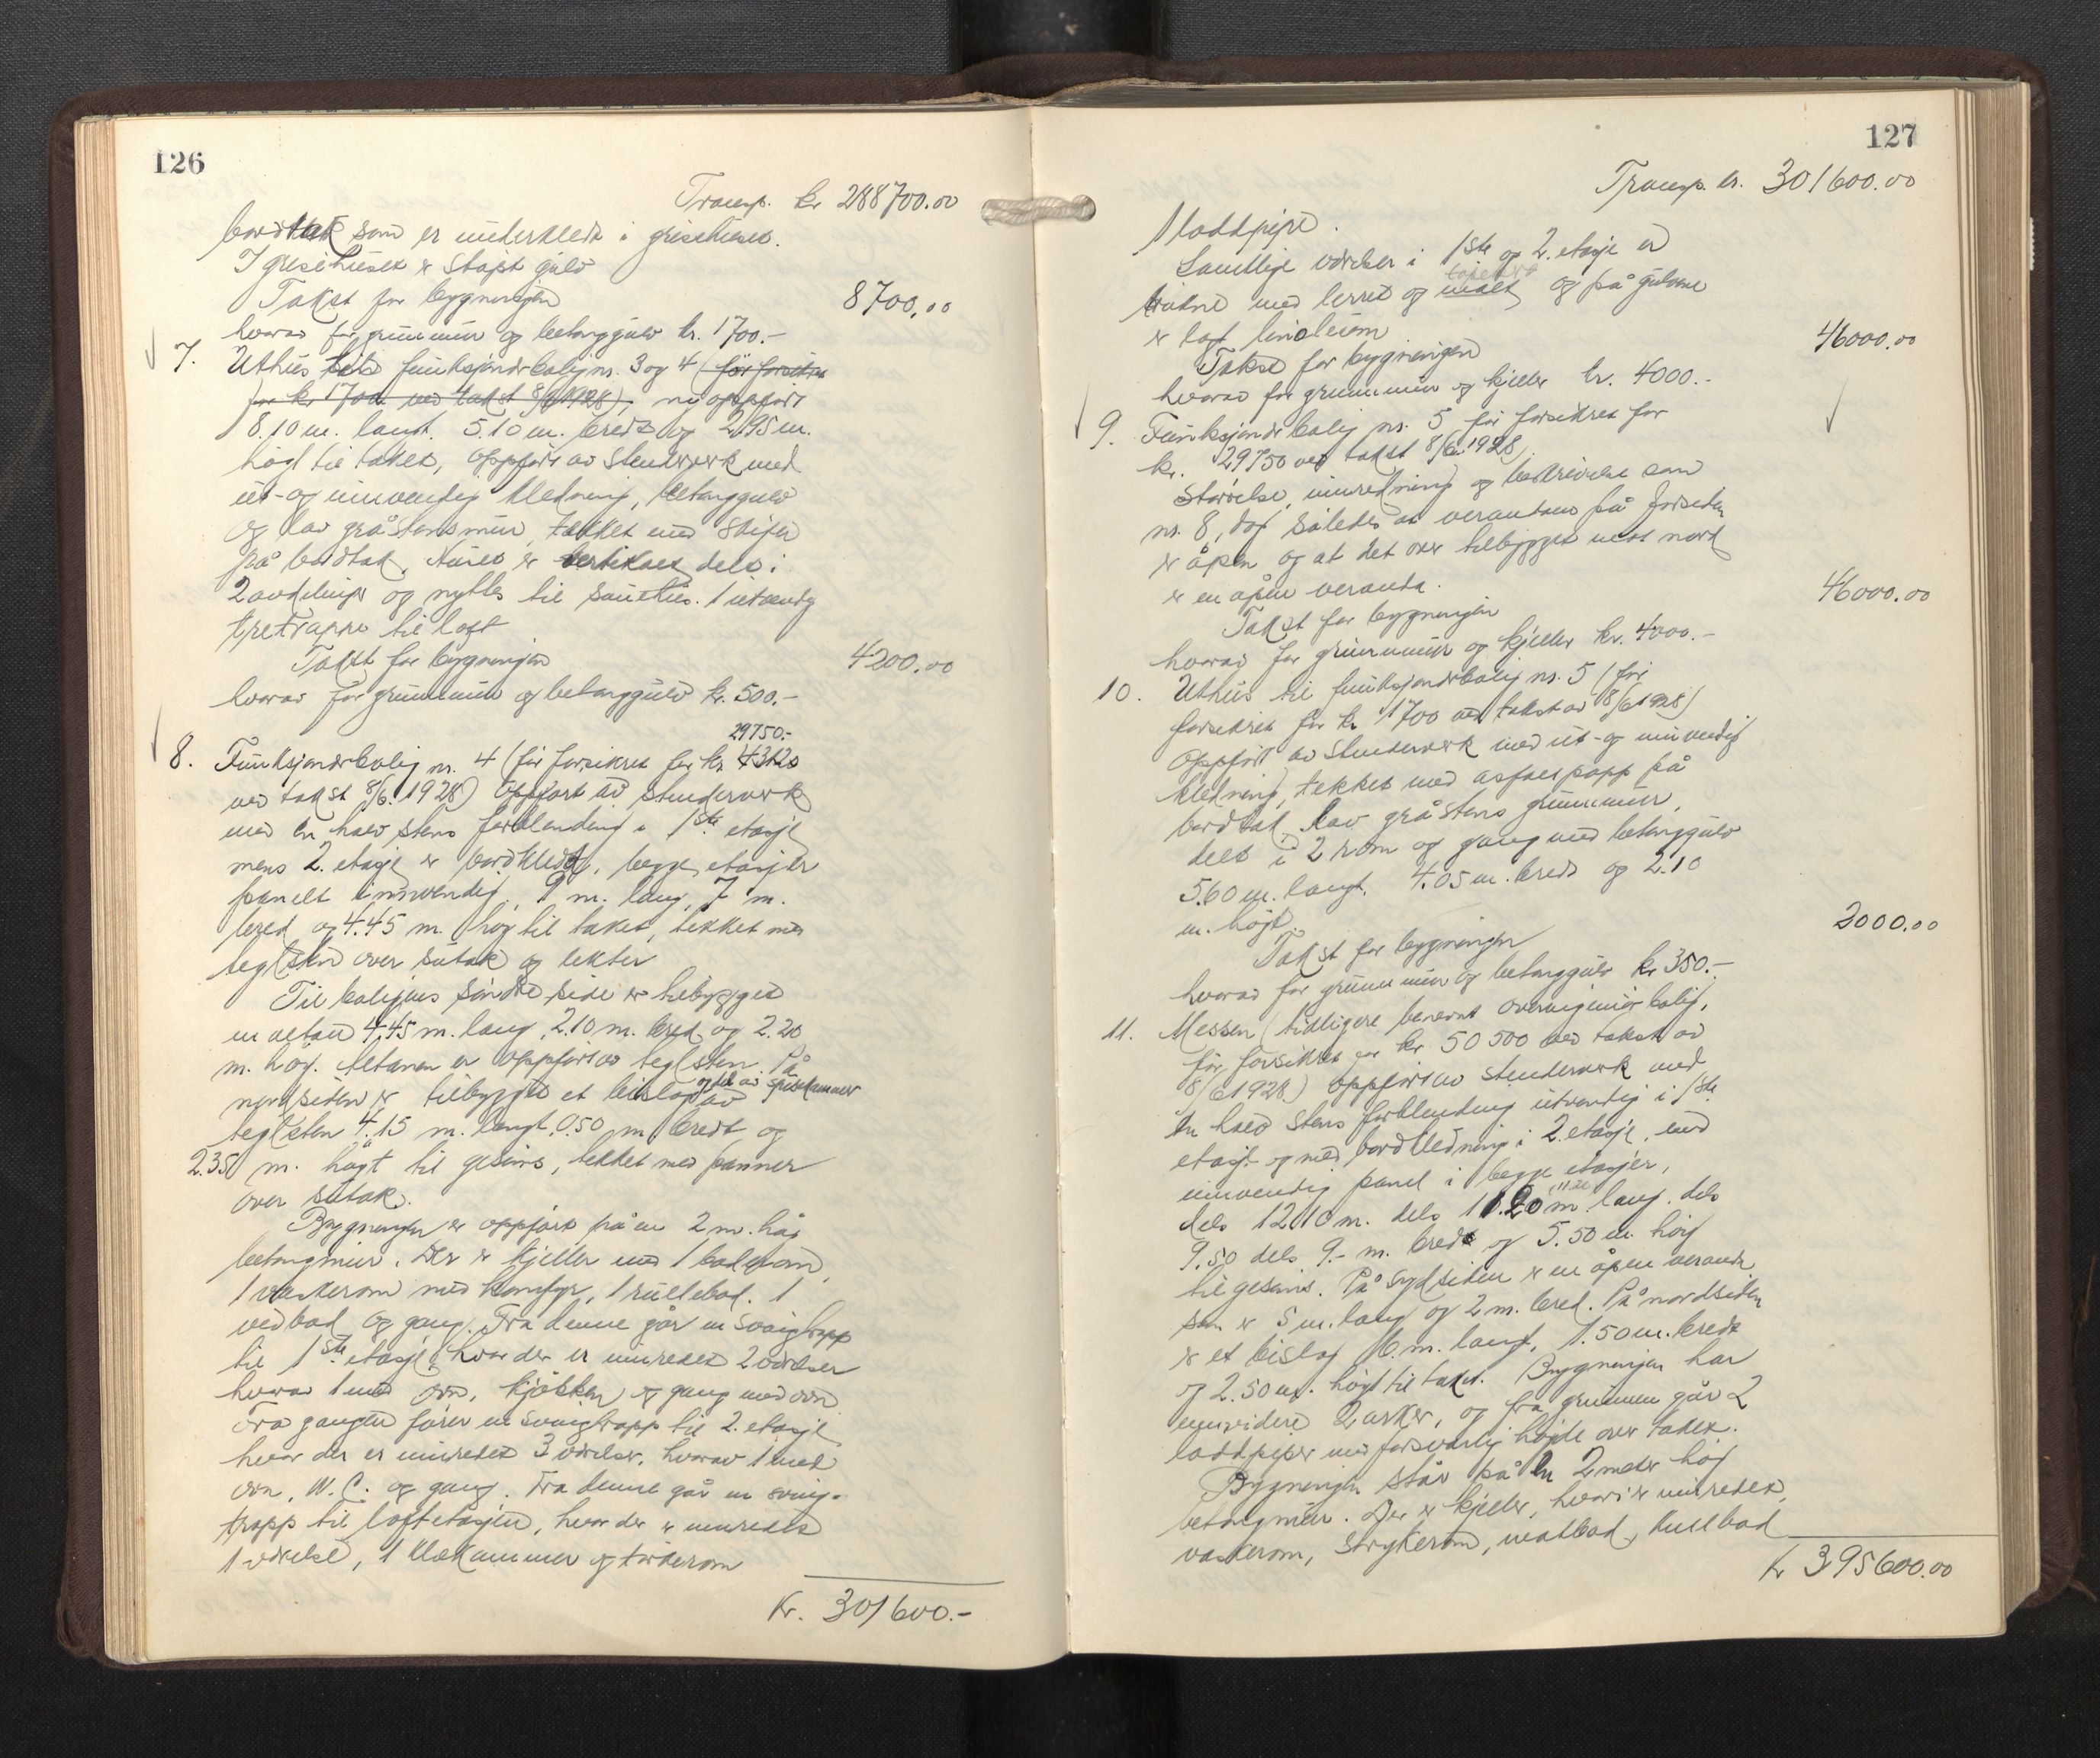 126
Transp. kr 288700.00
bordtak som er underkledt i grisehuset.
I grisehuset er støpt gulv
Takst for bygningen 8700.00
hvorav for grunnmur og betonggulv kr. 1700.-
7. Uthus til funksjonærbolig nr. 3 og 4 (før forsikret
for kr 1700 ved takst 8/6 1928), ny oppført
8.10 m. langt. 5.10 m. bredt og 2.95 m.
høgt til taket, oppført av stenderverk med
ut- og innvendig kledning, betonggulv
og lav gråstensmur, tekket med skifer
på bordtak. Huset er vertikalt delt i
2 avdelinger og nyttes til 1 utvendig
tretrapp til loft
Takst for bygningen 4200.00
hvorav for grunnmur og betonggulv kr. 500.-
29750.-
8. Funksjonærbolig nr. 4 (før forsikret for kr.
ved takst 8/6. 1928) oppført av stenderverk
med en halv stens forblending i 1ste etasje
mens 2. etasje er bordkledt, begge etasjer
panelt innvendig. 9 m. lang, 7 m.
bred og 4.45 m. høg til taket, tekket med
teglsten over sutak og lekter
Til boligens søndre side er tilbygget
en altan 4.45 m. lang, 2.10 m. bred og 2.20
m. høg. Altanen er oppført av teglsten. På
nordsiden er tilbygget et bislag av
og del av spisekammer
teglsten 4.15 m. langt. 0.50 m. bredt og
2.35 m. høgt til gesims, tekket med panner
over sutak.
Bygningen er oppført på en 2 m. høg
betongmur. Der er kjeller med 1 baderom,
1 vaskerom med komfyr, 1 rullebod. 1
vedbod og gang. Fra denne går en svingtrapp
til 1ste etasje hvor der er innredet 2 værelser
hvorav 1 med ovn, kjøkken og gang med ovn
Fra gangen fører en svingtrapp til 2. etasje
hvor der er innredet 3 værelser, hvorav 1 med
ovn, W.C. og gang. Fra denne går en sving-
trapp til loftetasjen, hvor der er innredet
1 værelse, 1 klekammer og tørkerom
Kr. 301600.-
127
Transp. kr. 301600.00
1 loddpipe.
Samtlige værelser i 1ste og 2. etasje er
trukne med lerret og malt og på gulvene
er lagt linoleum
Takst for bygningen 46000.00
hvorav for grunnmur og kjeller kr. 4000.-
9. Funksjonærbolig nr. 5 før forsikret for
kr. 29750 ved takst 8/6 1928
Størrelse, innredning og beskrivelse som
nr. 8, dog således at verandaen på forsiden
er åpen og at det over tilbygget mot nord
er en åpen veranda.
Takst for bygningen 46000.00
hvorav for grunnmur og kjeller kr. 4000.-
10. Uthus til funksjonærbolig nr. 5 (før
forsikret for kr 1700 ved takst av 8/6 1928)
Oppført av stenderverk med ut- og innvendig
kledning, tekket med asfaltpapp på
bordtak, lav gråstens grunnmur,
delt i 2 rom og gang med betonggulv
5.60 m. langt. 4.05 m. bredt og 2.10
m. høgt.
Takst for bygningen 2000.00
hvorav for grunnmur og betonggulv kr 350.-
11. Messen (tidligere benevnt overingeniørbolig,
før forsikret for kr 50500 ved takst av
8/6 1928) oppført av stenderverk med
en halv stens forblending utvendig i 1ste
etasje og med bordkledning i 2. etasje, med
innvendig panel i begge etasjer,
dels 12.10 m. dels 11.20 m lang. dels
9.50 dels 9.- m. bred og 5.50 m. høg
til gesims. På sydsiden er en åpen veranda
som er 5 m. lang og 2 m. bred. På nordsiden
er et bislag 6. m. langt, 1.50 m. bredt
og 2.50 m. høgt til taket. Bygningen har
ennvidere 2 arker, og fra grunnen går 2
loddpiper med forsvarlig høyde over taket.
Bygningen står på en 2 meter høg
betongmur. Der er kjeller, hvori er innredet
vaskerom, strykerom, matbod, kullbod
Kr 395600.00